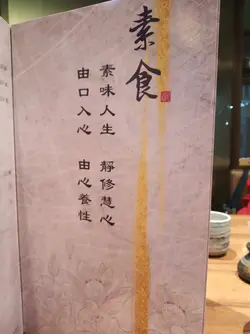 素食
素味人生 靜修慧心
由口入心 由心養性